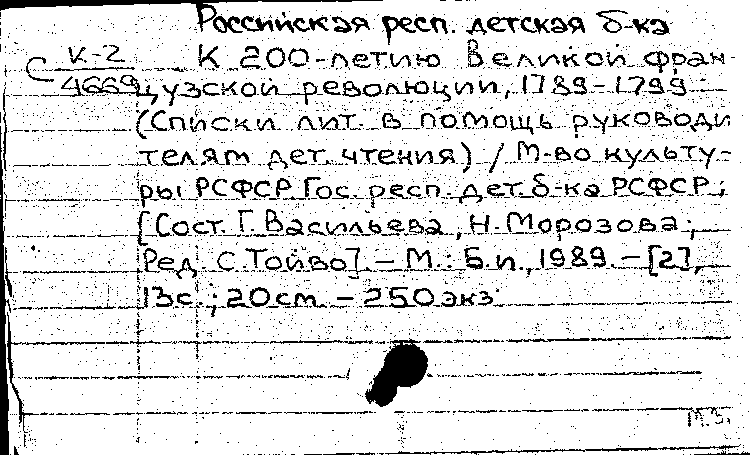 Российская респ. детская б-ка
С К-2 К 200-летию Великой фран-
4669 цузской революции, 1789-1799:
(Списки лит. в помощь руководи
телям дет. чтения) / М-во культу-
ры РСФСР. Гос. респ. дет. б-ка РСФСР;
[Сост. Г. Васильева, Н. Морозова;
Ред. С. Тойво]. - М.: Б.и., 1989. - [2],
13с.; 20см. - 250экз.
М.З.